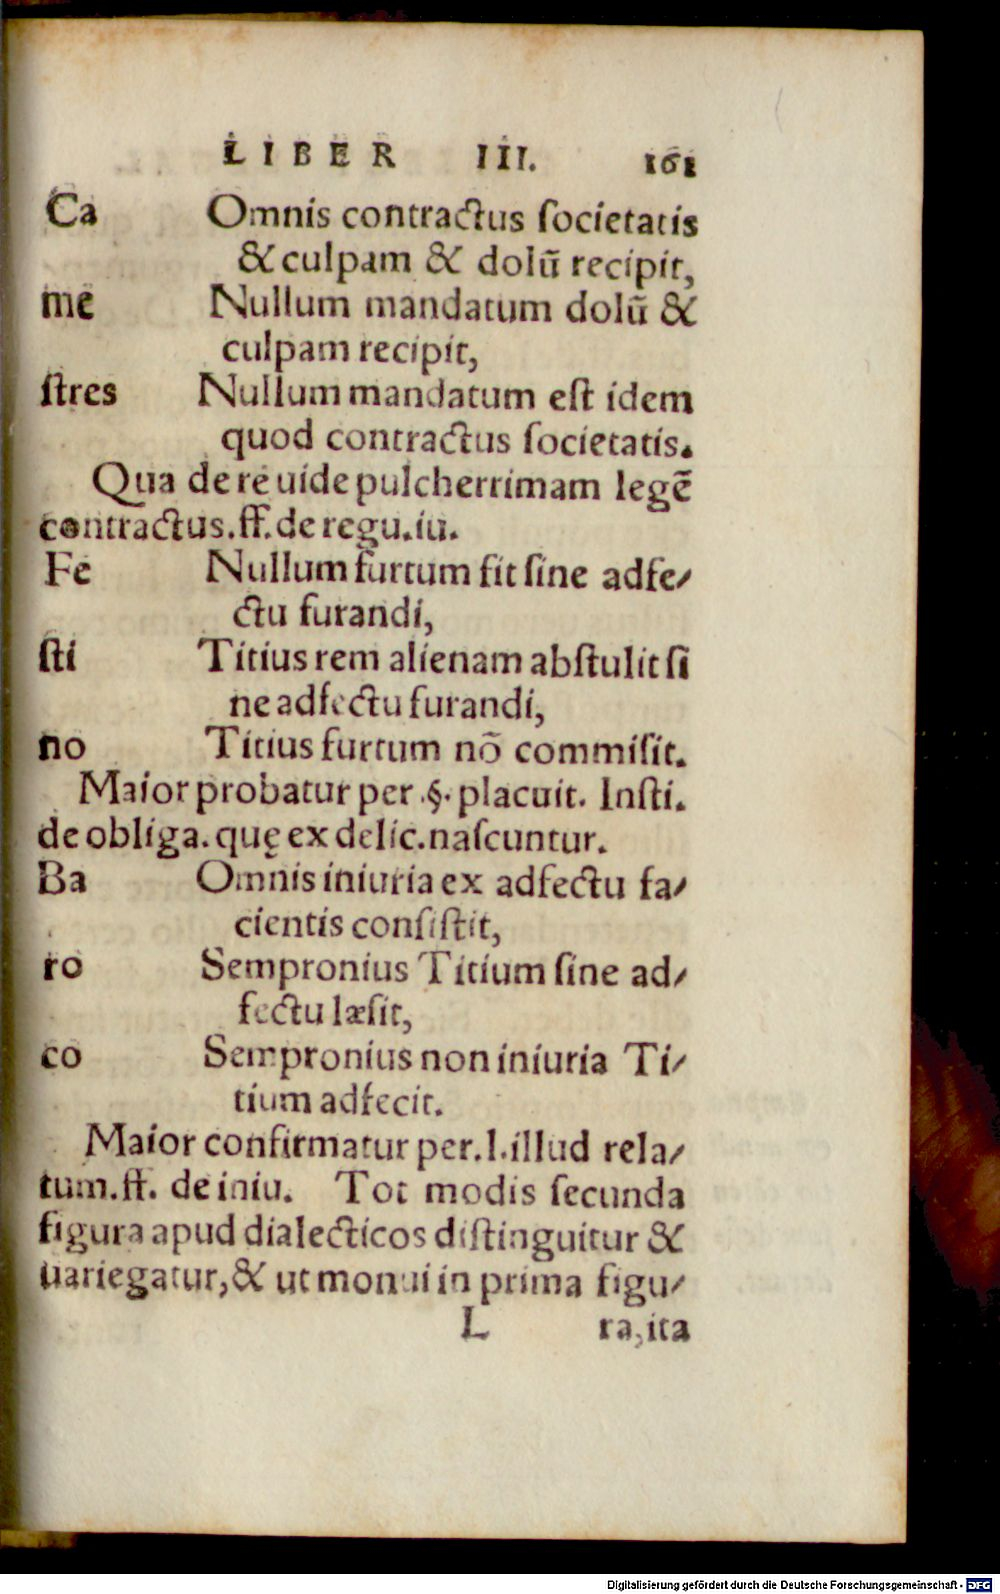 LIBER III. 161
Ca Omnis contractus ſocietatis
& culpam & dolũ recipit,
me Nullum mandatum dolũ &
culpam recipit,
ſtres Nullum mandatum eſt idem
quod contractus ſocietatis.
Qua de re uide pulcherrimam legẽ
contractus.ff.de regu.iu.
Fe Nullum furtum fit ſine adfe/
ctu furandi,
ſti Titius rem alienam abſtulit ſi
ne adfectu furandi,
no Titius furtum nõ commiſit.
Maior probatur per .§. placuit. Inſti.
de obliga. quę ex delic. naſcuntur.
Ba Omnis iniuria ex adfectu fa/
cientis conſiſtit,
ro Sempronius Titium ſine ad/
fectu læſit,
co Sempronius non iniuria Ti/
tium adfecit.
Maior confirmatur per.l.illud rela/
tum.ff. de iniu. Tot modis ſecunda
figura apud dialecticos diſtinguitur &
uariegatur,& ut monui in prima figu/
L ra,ita
Digitalisierung gefördert durch die Deutsche Forschungsgemeinschaft - DFG